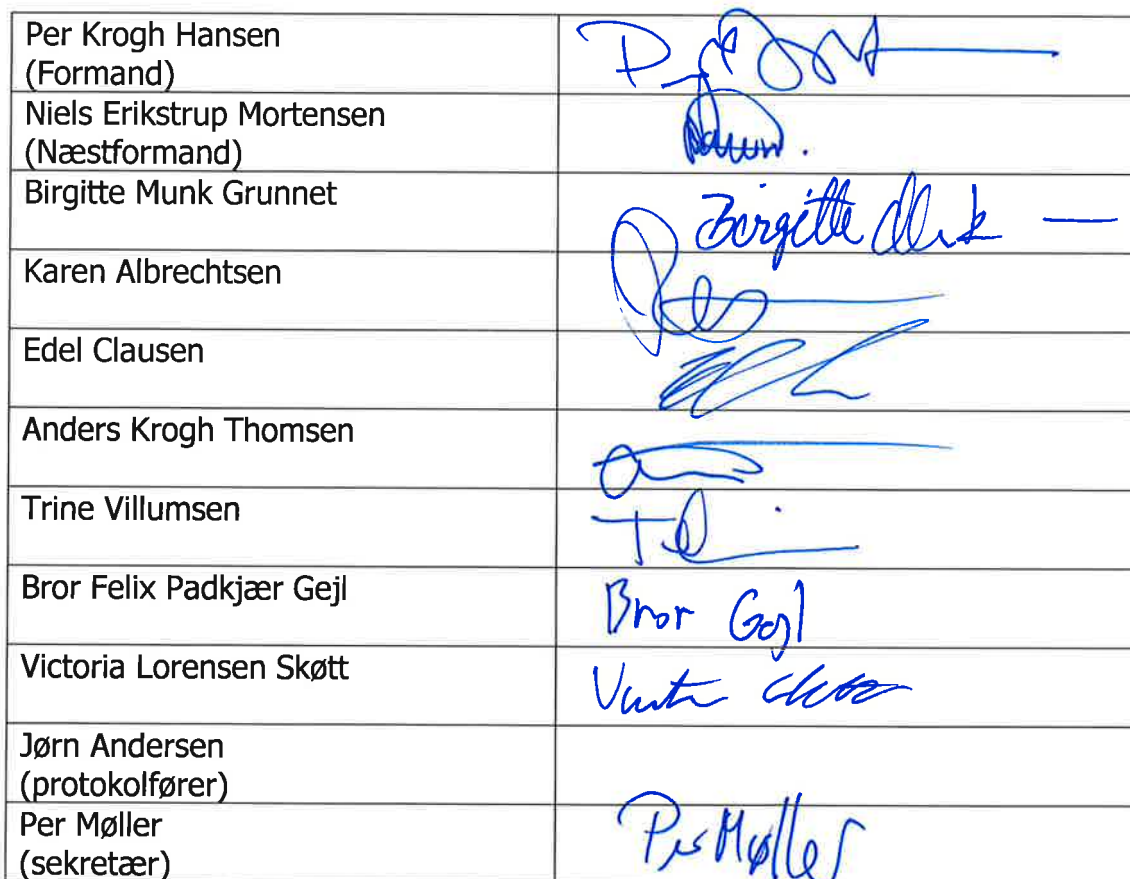 Per Krogh Hansen
(Formand)
Niels Erikstrup Mortensen
(Næstformand)
Birgitte Munk Grunnet
Birgitte
Karen Albrechtsen
Edel Clausen
Anders Krogh Thomsen
Trine Villumsen
Bror Felix Padkjær Gejl
Bror Gejl
Victoria Lorensen Skøtt
Jørn Andersen
(protokolfører)
Per Møller
(sekretær)
Per Møller